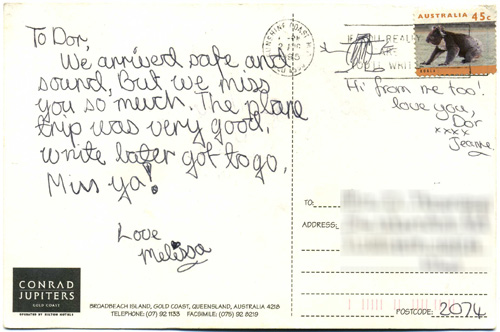 To Dor,
We arrived safe and
sound, but we miss
you so much. The plane
trip was very good.
write later got to go.
Miss ya!
Love
Melissa
AUSTRALIA 45c
KOALA
SUNSHINE COAST
IF YOU REALLY
Hi from me too!
love you,
Dor
xxxx
Jeanne
TO:
ADDRESS:
POSTCODE: 2074
CONRAD
JUPITERS
GOLD COAST
OPERATED BY HILTON HOTELS
BROADBEACH ISLAND, GOLD COAST, QUEENSLAND, AUSTRALIA 4218
TELEPHONE: (07) 92 1133 FACSIMILE: (075) 92 8219